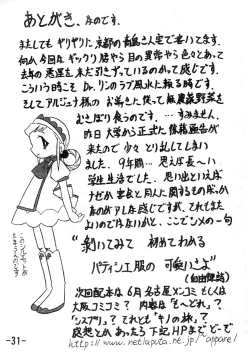 あとがき、なのです。
またしてもギリギリに京都の青鳥さん宅で書いてます。
何か今回はギックリ腰やら目の異常やら色々とあって
去年の悪運を未だ引きずっているのかって感じです。
こういう時こそ Dr.リンのラブ風水に頼る時です。
そしてアルジュナ様のお導きに従って無農薬野菜を
むさぼり食うのです。…すみません。
昨日大学から正式に
たので少々とり乱してしまい
ました。9年間…思えば長〜い
学生生活でした。思い出といえば
なぜか
なのがアレな感じですが、それもまた
よいのではないかと、ここでシメの一句
“剥いてみて 初めてわかる
パティシエ服の 可愛いさよ”
(自由律詩)
次回配本は6月名古屋メンコミもしくは
大阪コミコミ？内容は「も〜どれ」？
「シスプリ」？それとも「キノの旅」？
感想とかあったら下記HPまでど〜ぞ
-31-